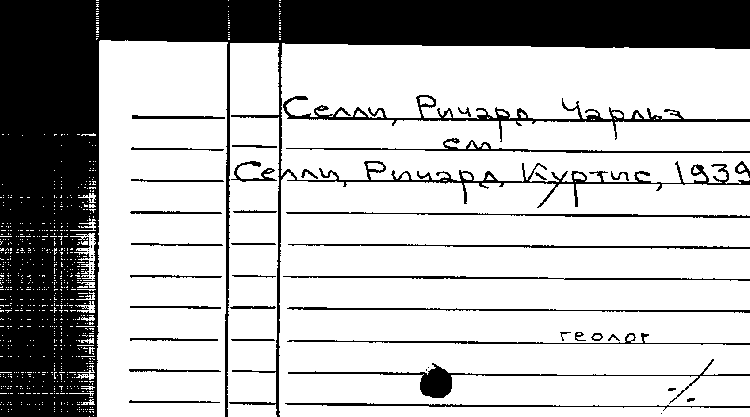 Селли, Ричард Чарльз
см.
Селли, Ричард Куртис, 1939
геолог